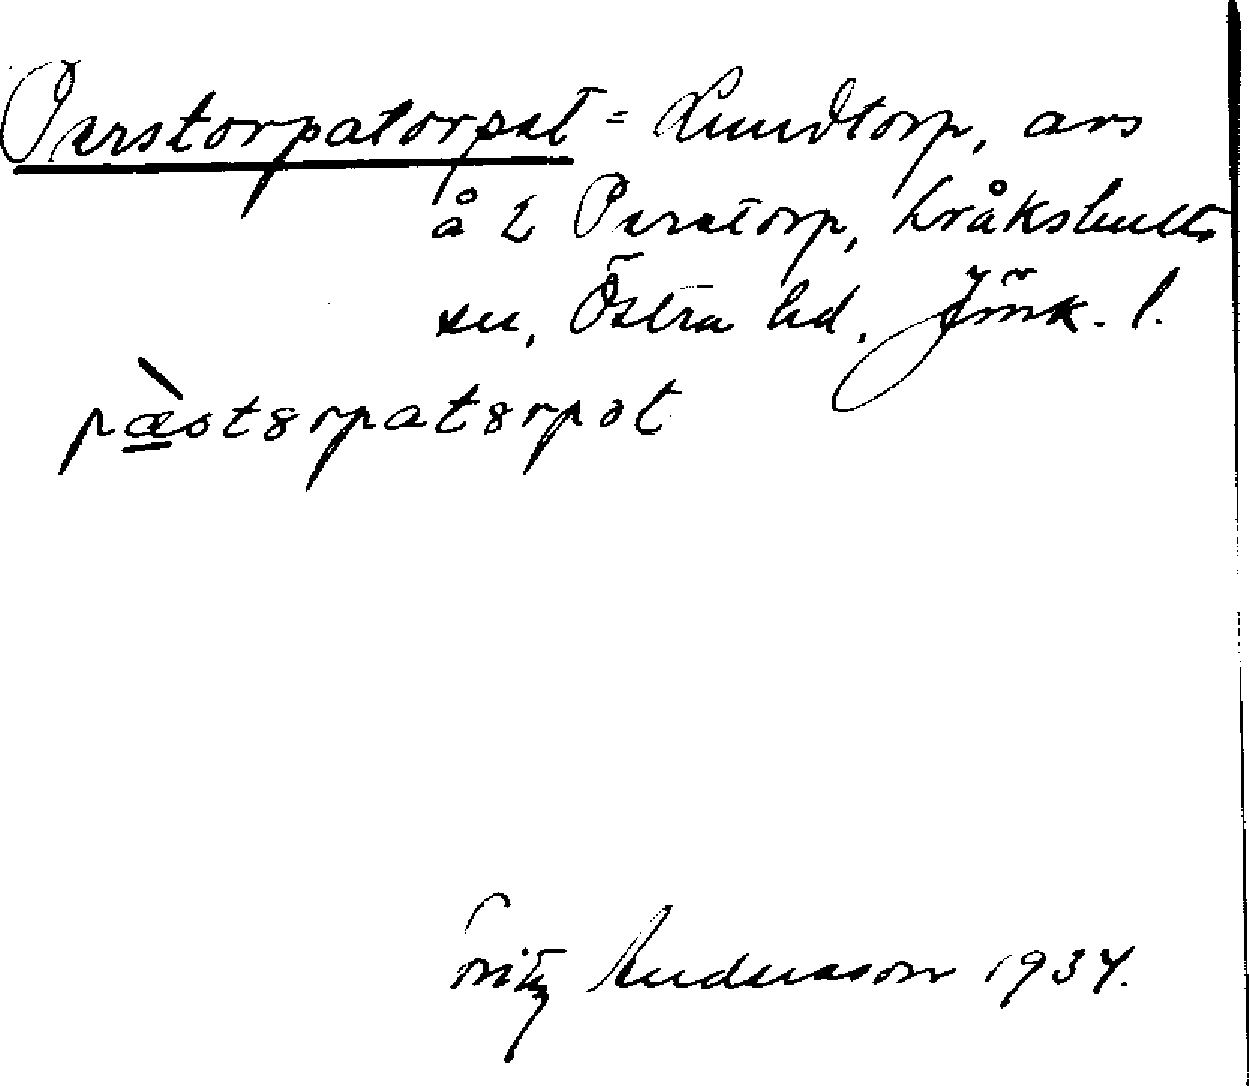 Perstorpatorpet = Lundtorp, avs
å 2 Perstorp, Bråkshults
sn, Östra hd, Jönk. l.
pæstɤrpatɤrpət
Fritz Andersson 1934.